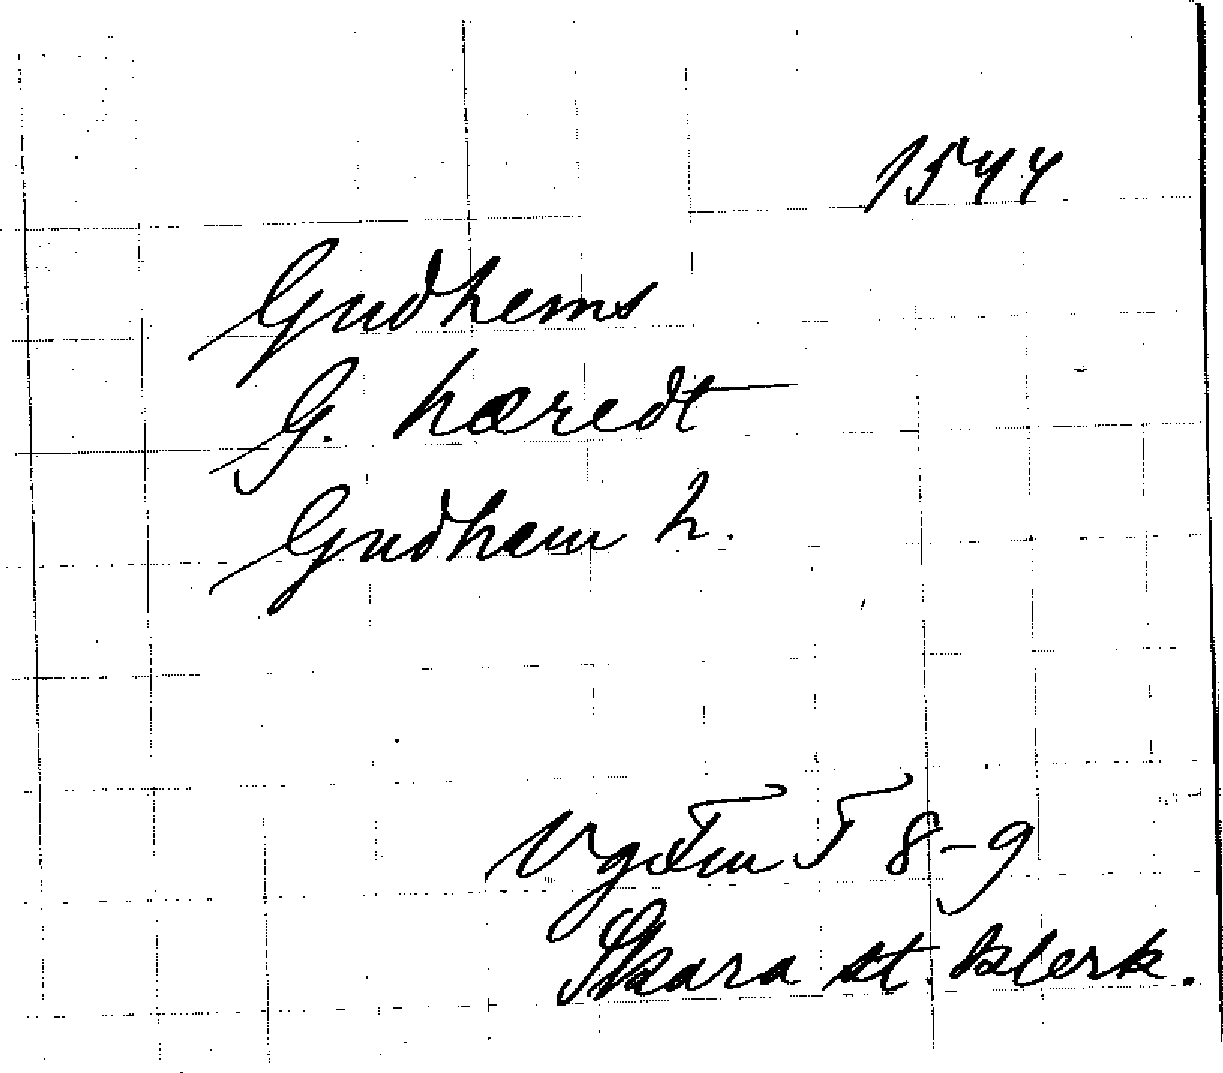 1544
Gudhems
G. hæredt
Gudhem h.
VgFm 5 8-9
Skara st. klerk.